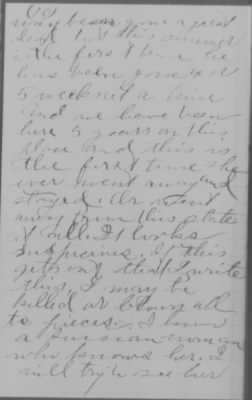 (10)
may been gone a great
deal but this summer
is the first time he
has been gone ex or
5 weeks at a time
And we have been
here 5 years on this
place and this is
the first time she
ever went away and
stayed. Or went
away from this state
at all. It looks
suspicious. If this
gets out that I write
this, I may be
killed or blown all
to pieces. I know
a Russian woman
who knows her. I
will try to see her